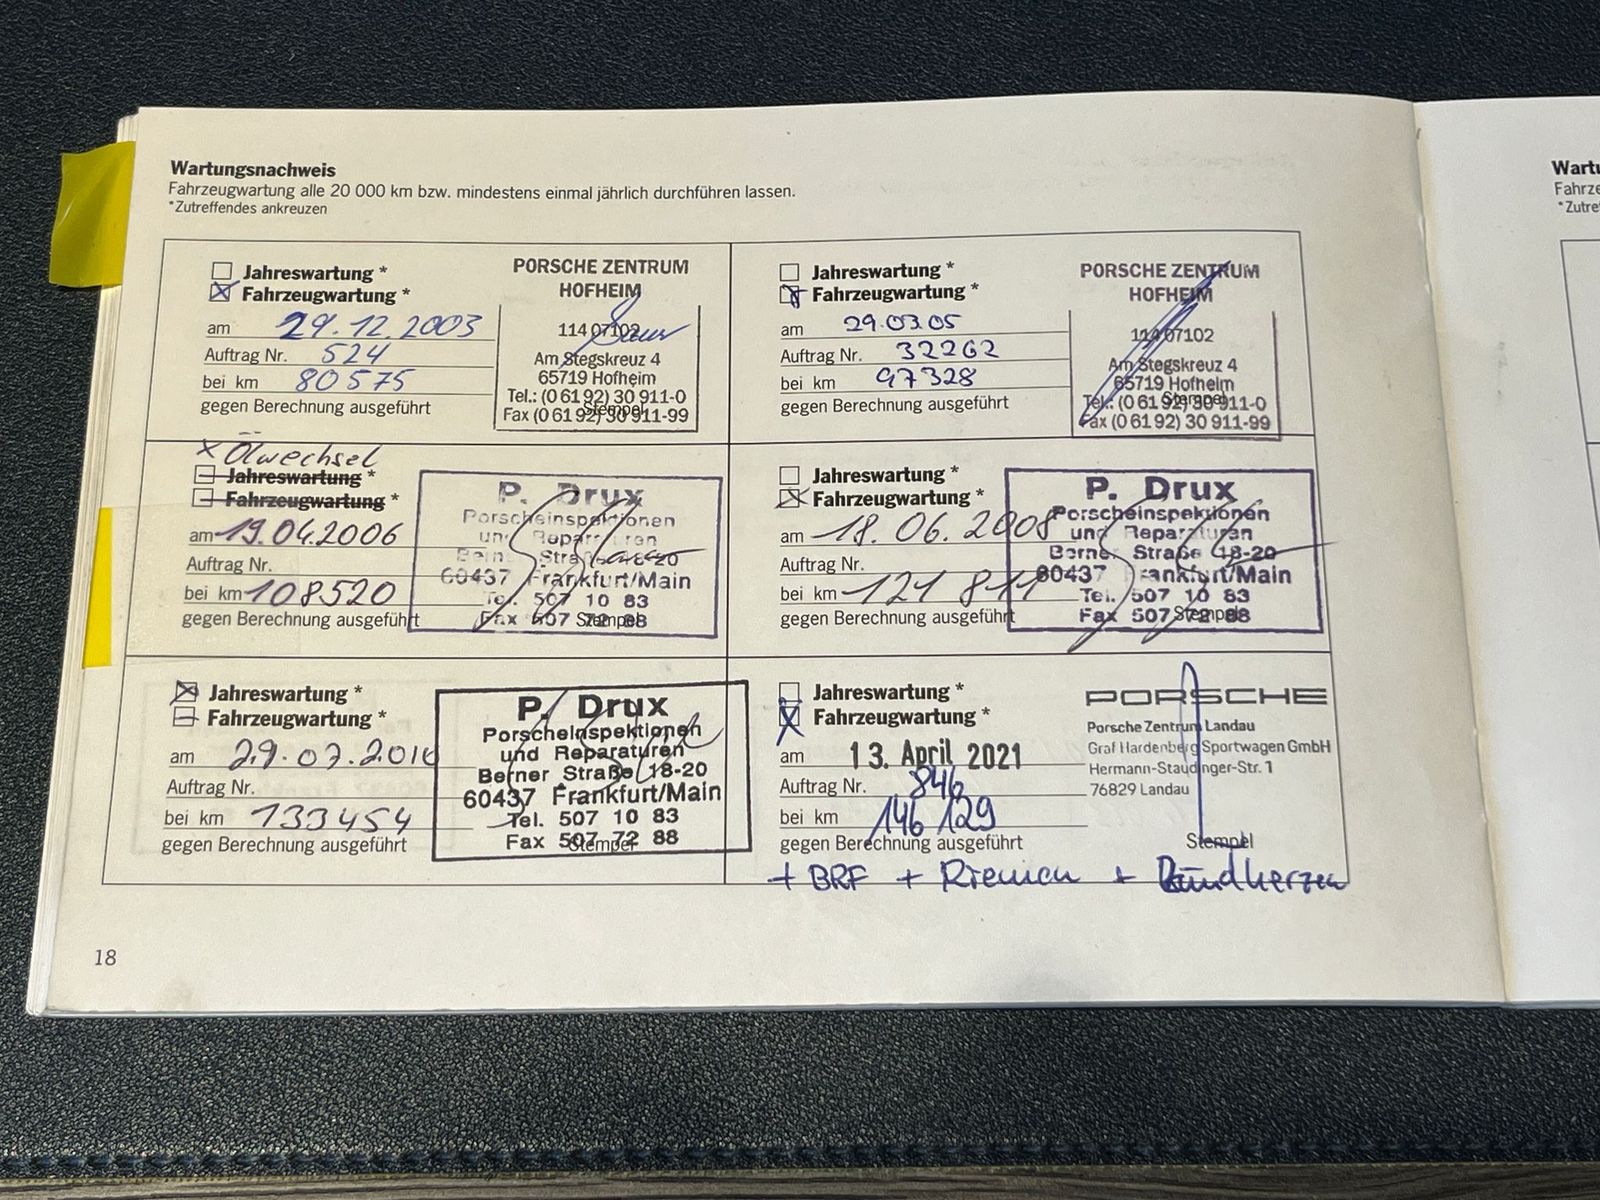 Wartungsnachweis
Fahrzeugwartung alle 20 000 km bzw. mindestens einmal jährlich durchführen lassen.
*Zutreffendes ankreuzen
Jahreswartung *
Fahrzeugwartung *
am 29.12.2003
Auftrag Nr. 524
bei km 80575
gegen Berechnung ausgeführt
PORSCHE ZENTRUM
HOFHEIM
114 07102
Am Stegskreuz 4
65719 Hofheim
Tel.: (0 61 92) 30 911-0
Stempel
Fax (0 61 92) 30 911-99
Jahreswartung *
Fahrzeugwartung *
am 29.03.05
Auftrag Nr. 32262
bei km 97328
gegen Berechnung ausgeführt
PORSCHE ZENTRUM
HOFHEIM
114 07102
Am Stegskreuz 4
65719 Hofheim
Tel.: (0 61 92) 30 911-0
Stempel
Fax (0 61 92) 30 911-99
x Ölwechsel
Jahreswartung *
Fahrzeugwartung *
am 19.04.2006
Auftrag Nr.
bei km 108520
gegen Berechnung ausgeführt
P. Drux
Porscheinspektionen
und Reparaturen
Berner Straße 18-20
60437 Frankfurt/Main
Tel. 507 10 83
Fax 507 72 88
Stempel
Jahreswartung *
Fahrzeugwartung *
am 18.06.2008
Auftrag Nr.
bei km 121 811
gegen Berechnung ausgeführt
P. Drux
Porscheinspektionen
und Reparaturen
Berner Straße 18-20
60437 Frankfurt/Main
Tel. 507 10 83
Fax 507 72 88
Stempel
Jahreswartung *
Fahrzeugwartung *
am 29.07.2010
Auftrag Nr.
bei km 133454
gegen Berechnung ausgeführt
P. Drux
Porscheinspektionen
und Reparaturen
Berner Straße 18-20
60437 Frankfurt/Main
Tel. 507 10 83
Fax 507 72 88
Stempel
Jahreswartung *
Fahrzeugwartung *
am 13. April 2021
Auftrag Nr. 846
bei km 146 129
gegen Berechnung ausgeführt
PORSCHE
Porsche Zentrum Landau
Graf Hardenberg Sportwagen GmbH
Hermann-Staudinger-Str. 1
76829 Landau
Stempel
+ BRF + Riemen + Zündkerzen
18
Wartu
Fahrze
*Zutre